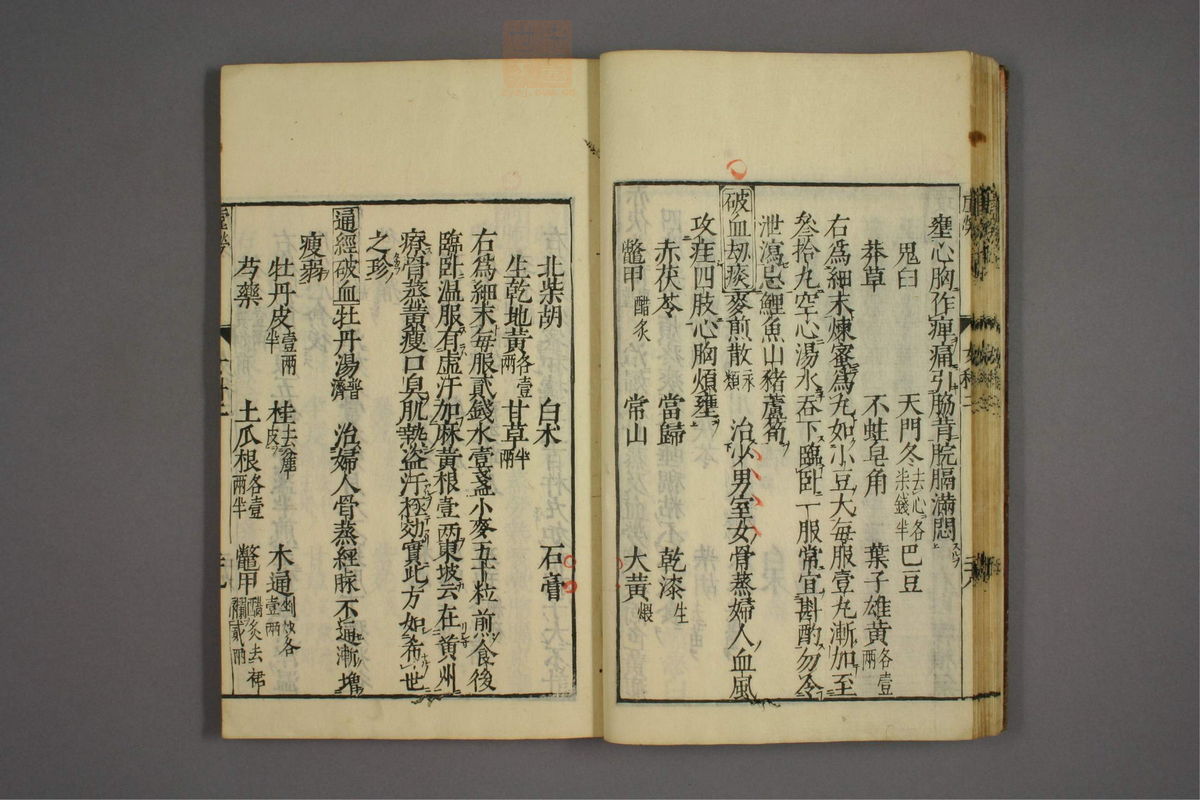 壅心胸作痺痛引脇背脘膈滿悶
鬼臼 天門冬去心各柒錢半 巴豆
莽草 不蛀皂角 葉子雄黃各壹兩
右爲細末煉蜜爲丸如小豆大每服壹丸漸加至
叄拾丸空心湯水吞下臨卧一服常宜斟酌勿令
泄瀉忌鯉魚山豬蘆笋
破血刼痰麥煎散永類 治少男室女骨蒸婦人血風
攻疰四肢心胸煩壅
赤茯苓 當歸 乾漆生
鱉甲醋炙 常山 大黃煨
北柴胡 白术 石膏
生乾地黃各壹兩 甘草半兩
右爲細末每服貳錢水壹盞小麥五十粒煎食後
臨卧温服有虛汗加麻黃根壹两東坡云在黃州
療骨蒸黃瘦口臭肌熱盗汗極効實此方如希世
之珍
通經破血牡丹湯普濟 治婦人骨蒸經脉不通漸增
瘦弱
牡丹皮壹兩半 桂去皮 木通剉炒各壹兩
芍藥 土瓜根各壹兩半 鱉甲醋炙去裙襴貳兩